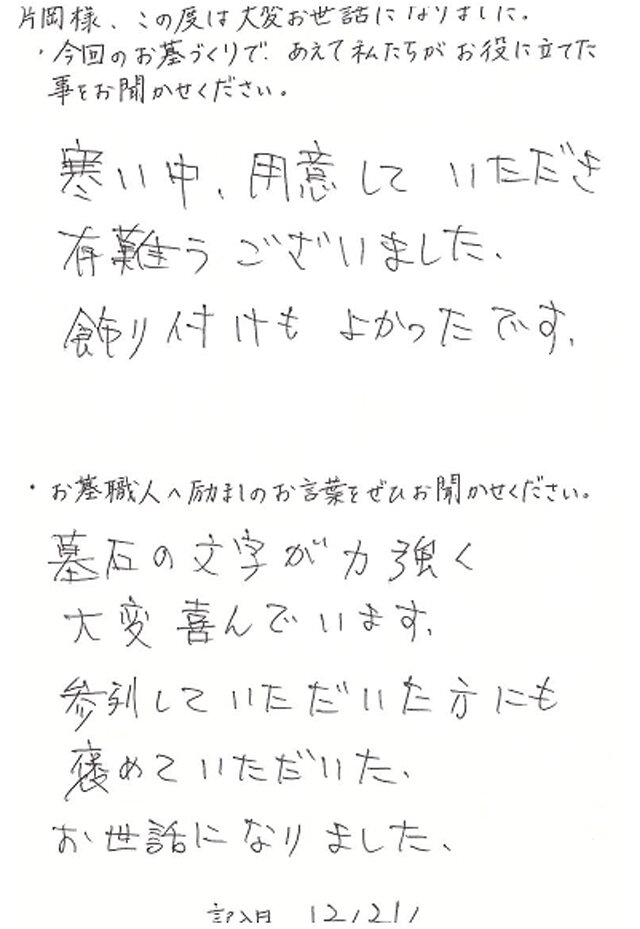 片岡様、この度は大変お世話になりました。
・今回のお墓づくりで、あえて私たちがお役に立てた
事をお聞かせください。
寒い中、用意して いただき
有難うございました、
飾り付けも よかったです、
・お墓職人へ励ましのお言葉をぜひお聞かせください。
墓石の文字が力強く
大変喜んでいます、
参列していただいた方にも
褒めていただいた、
お世話になりました、
記入日 12/21/